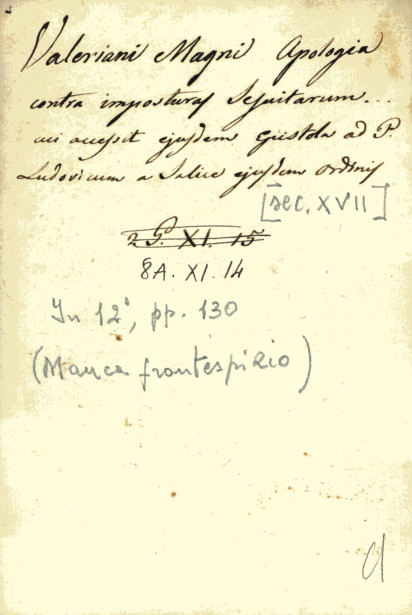 Valeriani Magni Apologia
contra imposturas Jesuitarum...
cui accessit ejusdem Epistola ad P.
Ludovicum a Salice ejusdem ordinis
[sec. XVII]
2 G. XI. 15
8A. XI. 14
In 12°, pp. 130
(Manca frontespizio)